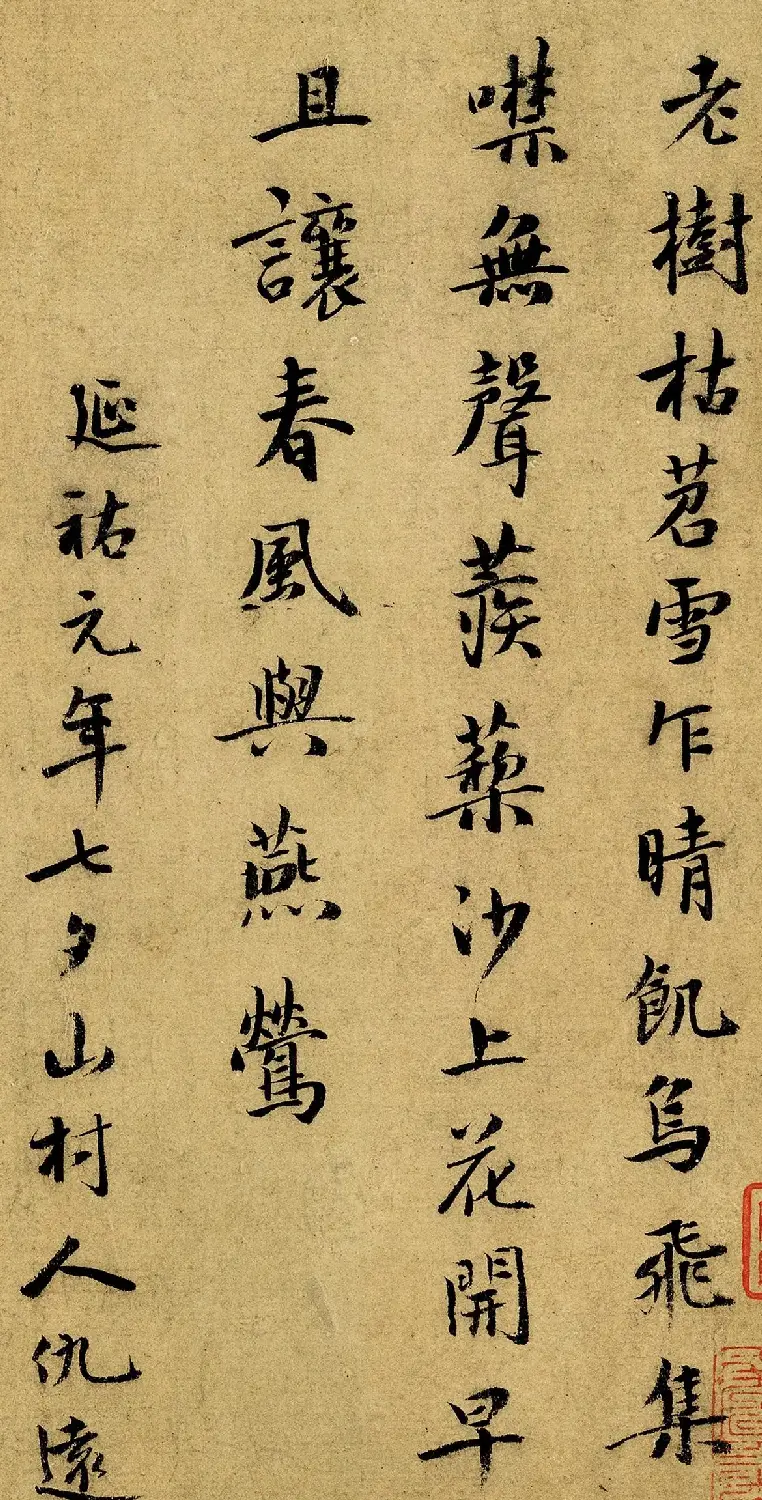 老樹枯苕雪乍晴飢烏飛集
噤無聲蒺蔾沙上花開早
且讓春風與燕鶯
延祐元年七夕山村人仇遠